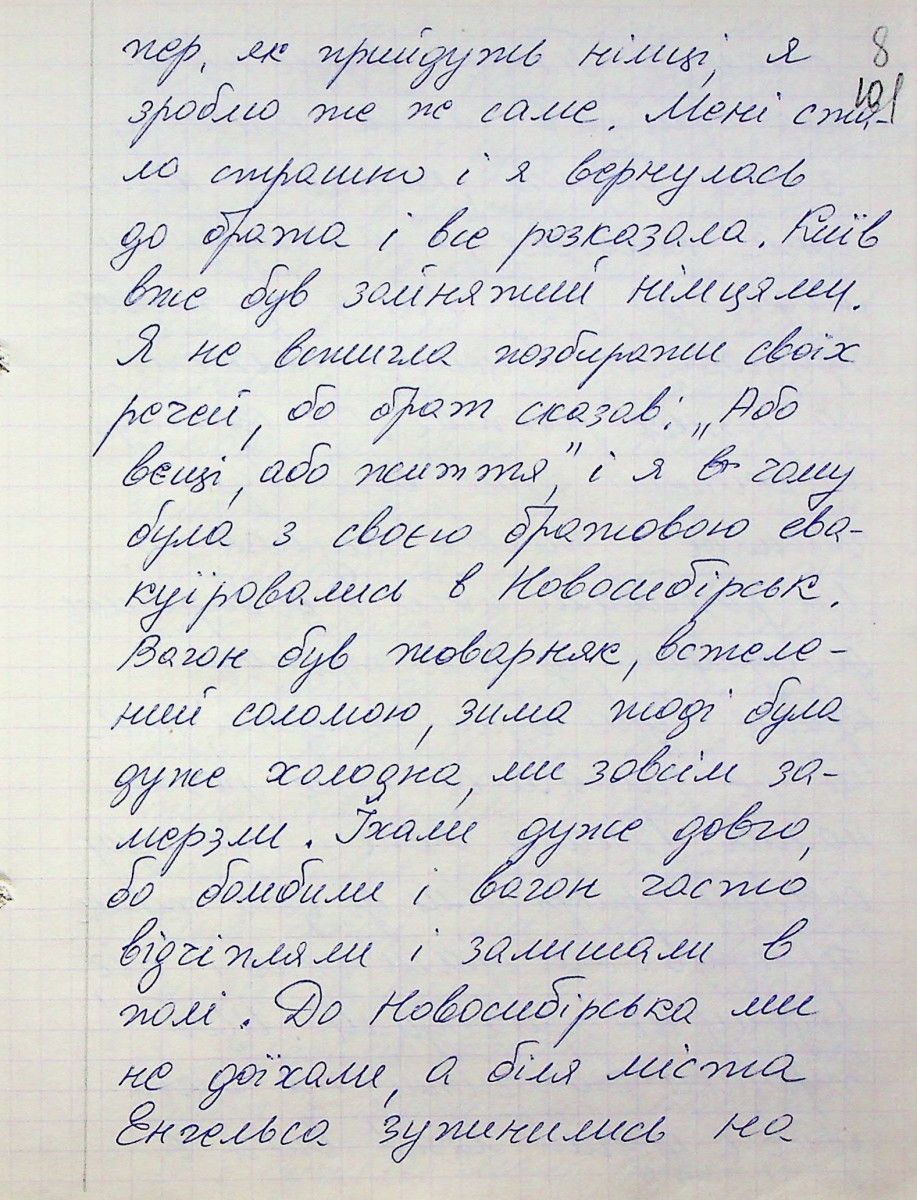 8
101
пер, як прийдуть німці, я
зроблю те ж саме. Мені ста-
ло страшно і я вернулась
до брата і все розказала. Київ
вже був зайнятий німцями.
Я не встигла позбирати своїх
речей, бо брат сказав: „Або
вєщі, або життя," і я в чому
була з своєю братовою ева-
куїровались в Новосибірськ.
Вагон був товарняк, встеле-
ний соломою, зима тоді була
дуже холодна, ми зовсім за-
мерзли. Їхали дуже довго,
бо бомбили і вагон часто
відчіпляли і залишали в
полі. До Новосибірська ми
не доїхали, а біля міста
Енгельса зупинились на